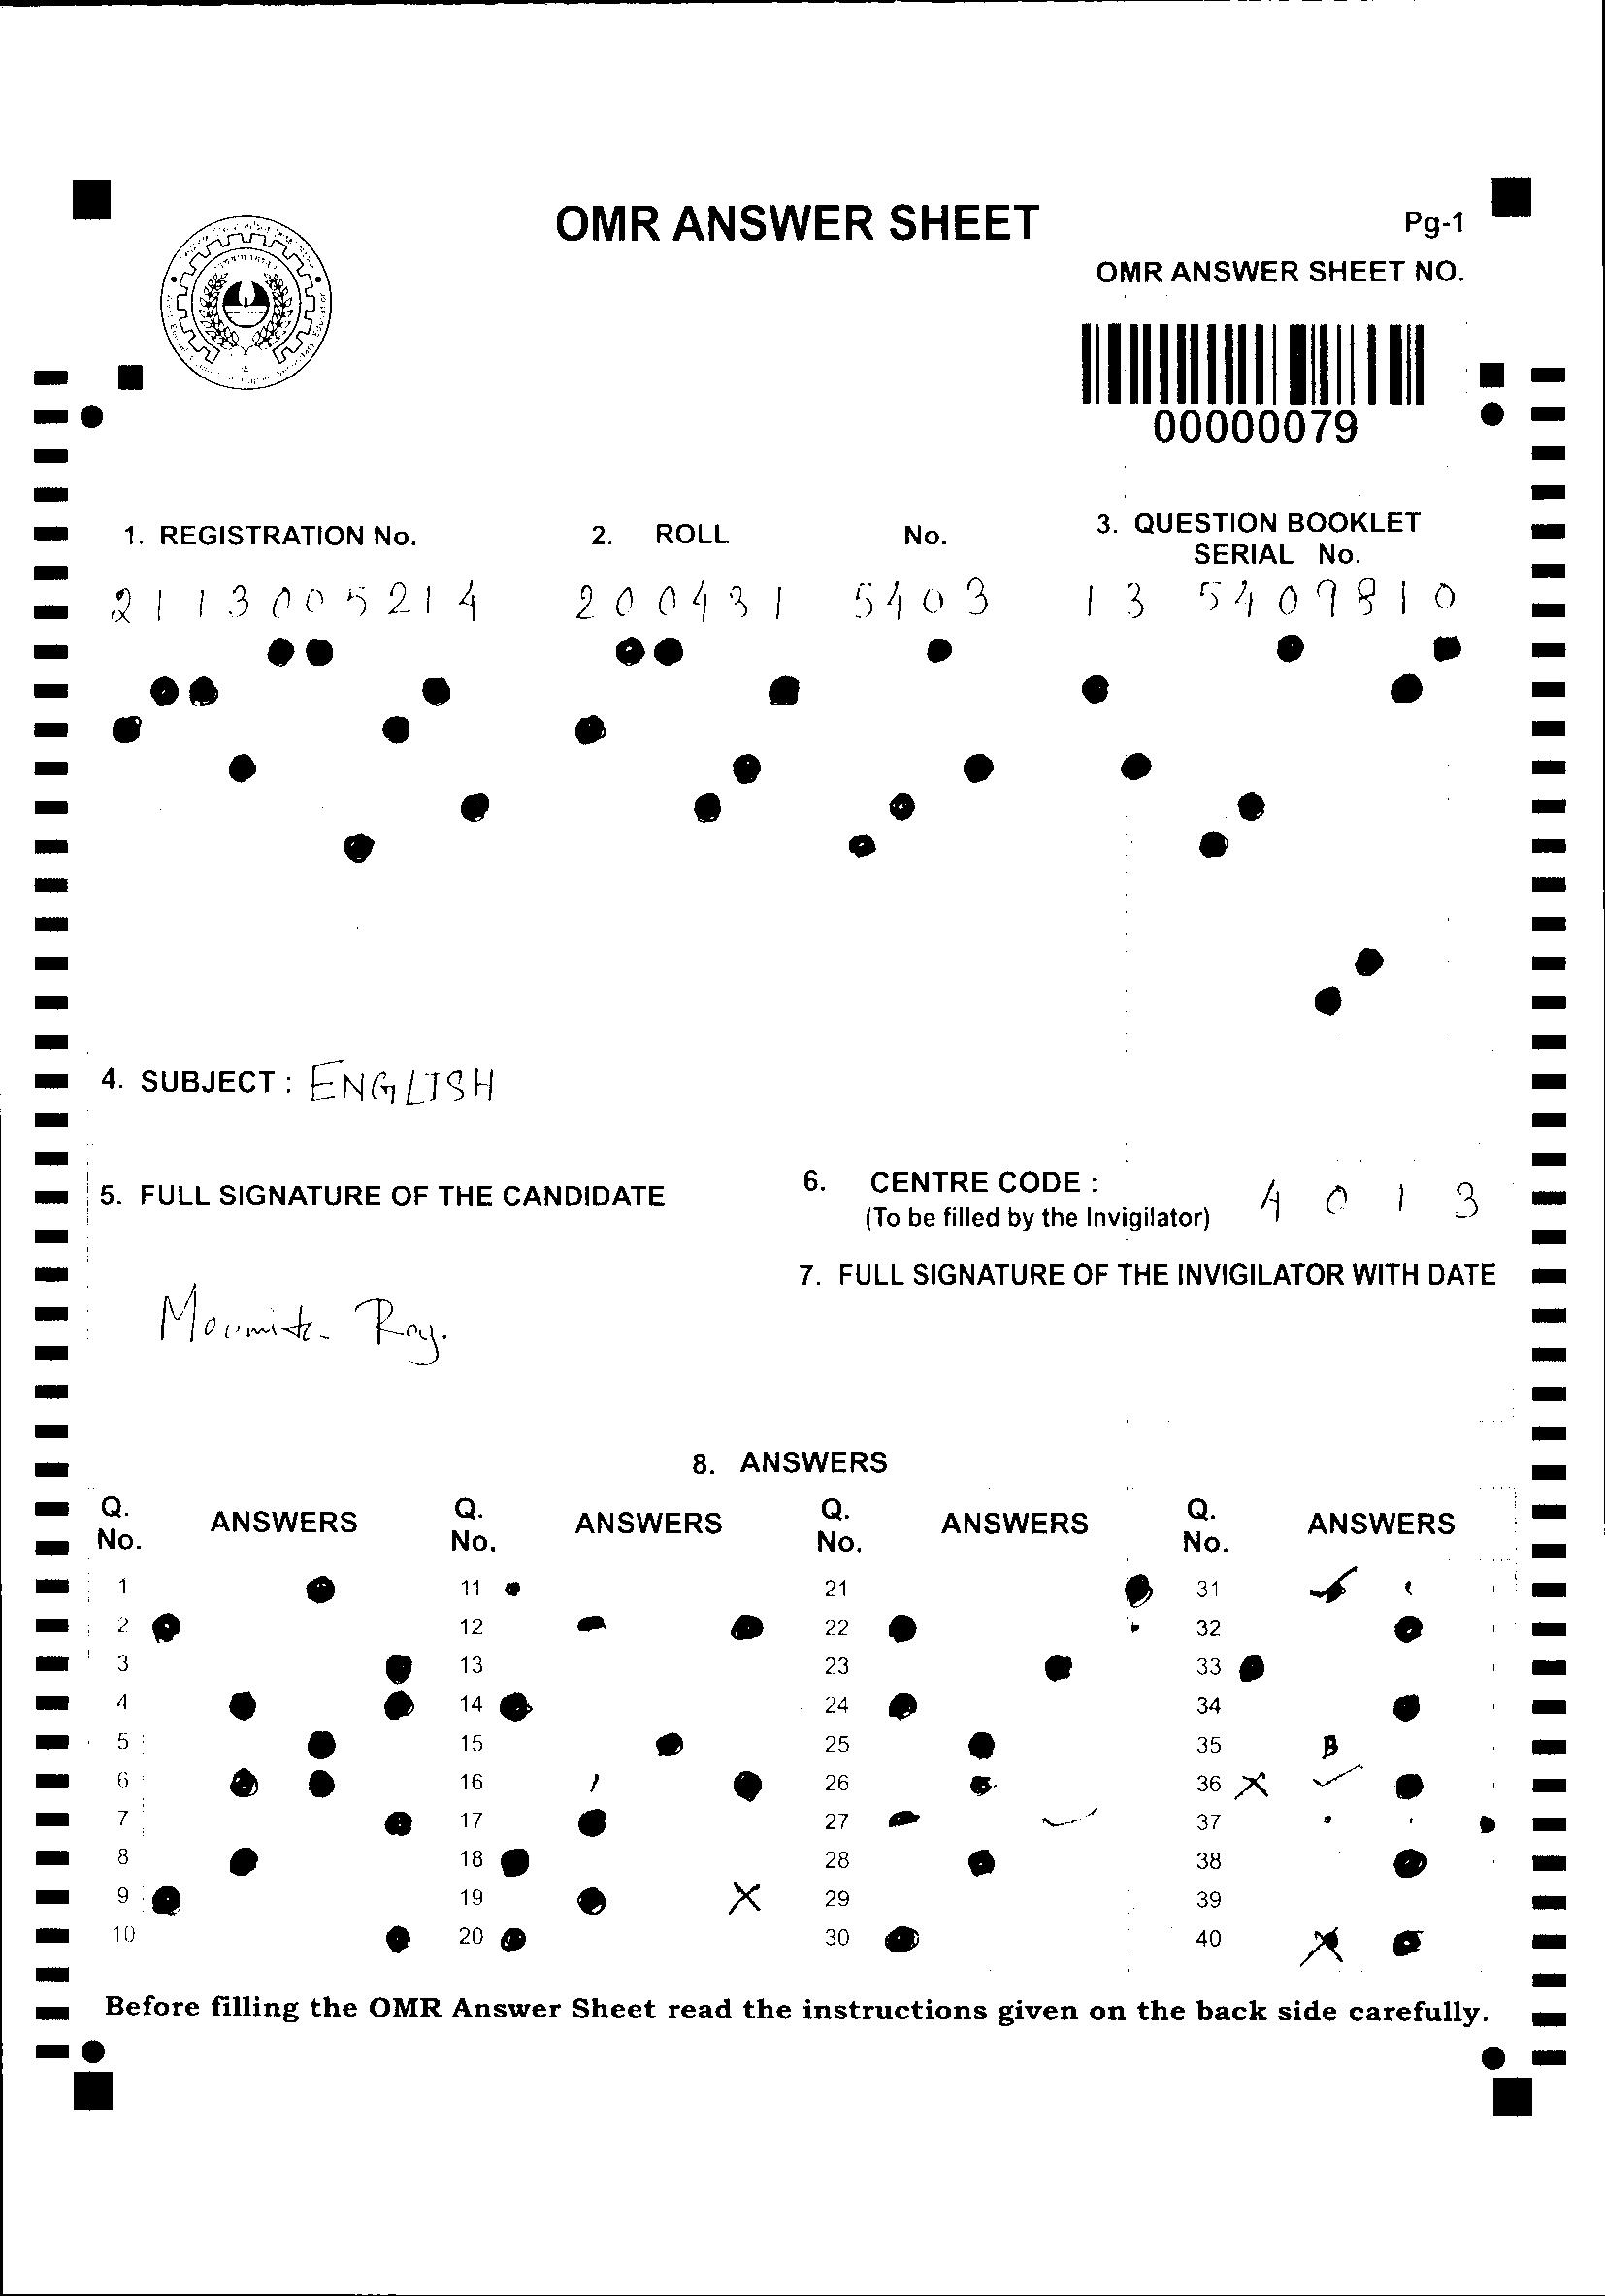 OMR ANSWER SHEET
Pg-1
OMR ANSWER SHEET NO.
00000079
1. REGISTRATION No.
2. ROLL No.
3. QUESTION BOOKLET
SERIAL No.
2113005214
200431 5403
13 5409810
4. SUBJECT : ENGLISH
5. FULL SIGNATURE OF THE CANDIDATE
6. CENTRE CODE : 4013
(To be filled by the Invigilator)
7. FULL SIGNATURE OF THE INVIGILATOR WITH DATE
Moumita Roy.
8. ANSWERS
Q. No. ANSWERS Q. No. ANSWERS Q. No. ANSWERS Q. No. ANSWERS
1 11 21 31
2 12 22 32
3 13 23 33
4 14 24 34
5 15 25 35 B
6 16 26 36
7 17 27 37
8 18 28 38
9 19 29 39
10 20 30 40
Before filling the OMR Answer Sheet read the instructions given on the back side carefully.